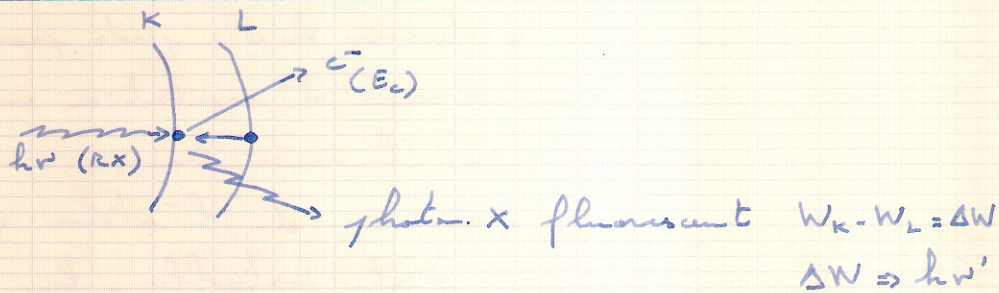 K L
e⁻ (Ec)
hν (RX)
photon X fluorescent WK - WL = ΔW
ΔW => hν'